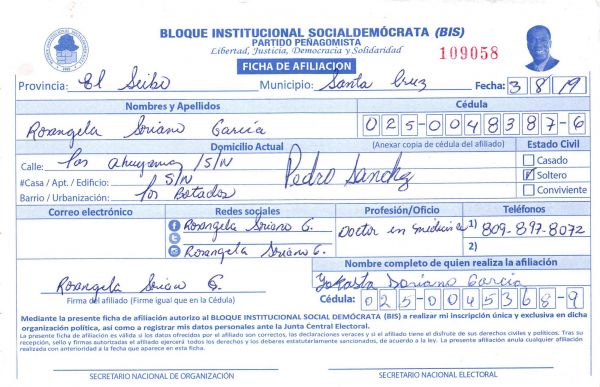 BLOQUE INSTITUCIONAL SOCIALDEMÓCRATA (BIS)
PARTIDO PEÑAGOMISTA
Libertad, Justicia, Democracia y Solidaridad
109058
FICHA DE AFILIACION
Provincia: El Seibo Municipio: Santa Cruz Fecha: 3/8/19
Nombres y Apellidos Cédula
Rosangela Soriano García 025-0048387-6
Domicilio Actual (Anexar copia de cédula del afiliado) Estado Civil
Calle: los S/N Pedro Sanchez Casado
#Casa / Apt. / Edificio: S/N Soltero
Barrio / Urbanización: los Botados Conviviente
Correo electrónico Redes sociales Profesión/Oficio Teléfonos
Rosangela Soriano G. Doctor en medicina 1) 809-897-8072
Rosangela Soriano G. 2)
Nombre completo de quien realiza la afiliación
Rosangela Sorian G. Yokasta Soriano García
Firma del afiliado (Firme igual que en la Cédula) Cédula: 025-0045368-9
Mediante la presente ficha de afiliación autorizo al BLOQUE INSTITUCIONAL SOCIAL DEMÓCRATA (BIS) a realizar mi inscripción única y exclusiva en dicha
organización política, así como a registrar mis datos personales ante la Junta Central Electoral.
La presente ficha de afiliación es válida si los datos ofrecidos por el afiliado son correctos, las declaraciones veraces y si el afiliado tiene el disfrute de sus derechos civiles y políticos. Tras su
recepción, sello y firmas autorizadas el afiliado ejercerá todos los derechos y los deberes estatutariamente sancionados, de acuerdo a la ley. La presente afiliación anula cualquier afiliación
realizada con anterioridad a la fecha que aparece en esta ficha.
SECRETARIO NACIONAL DE ORGANIZACIÓN SECRETARIO NACIONAL ELECTORAL